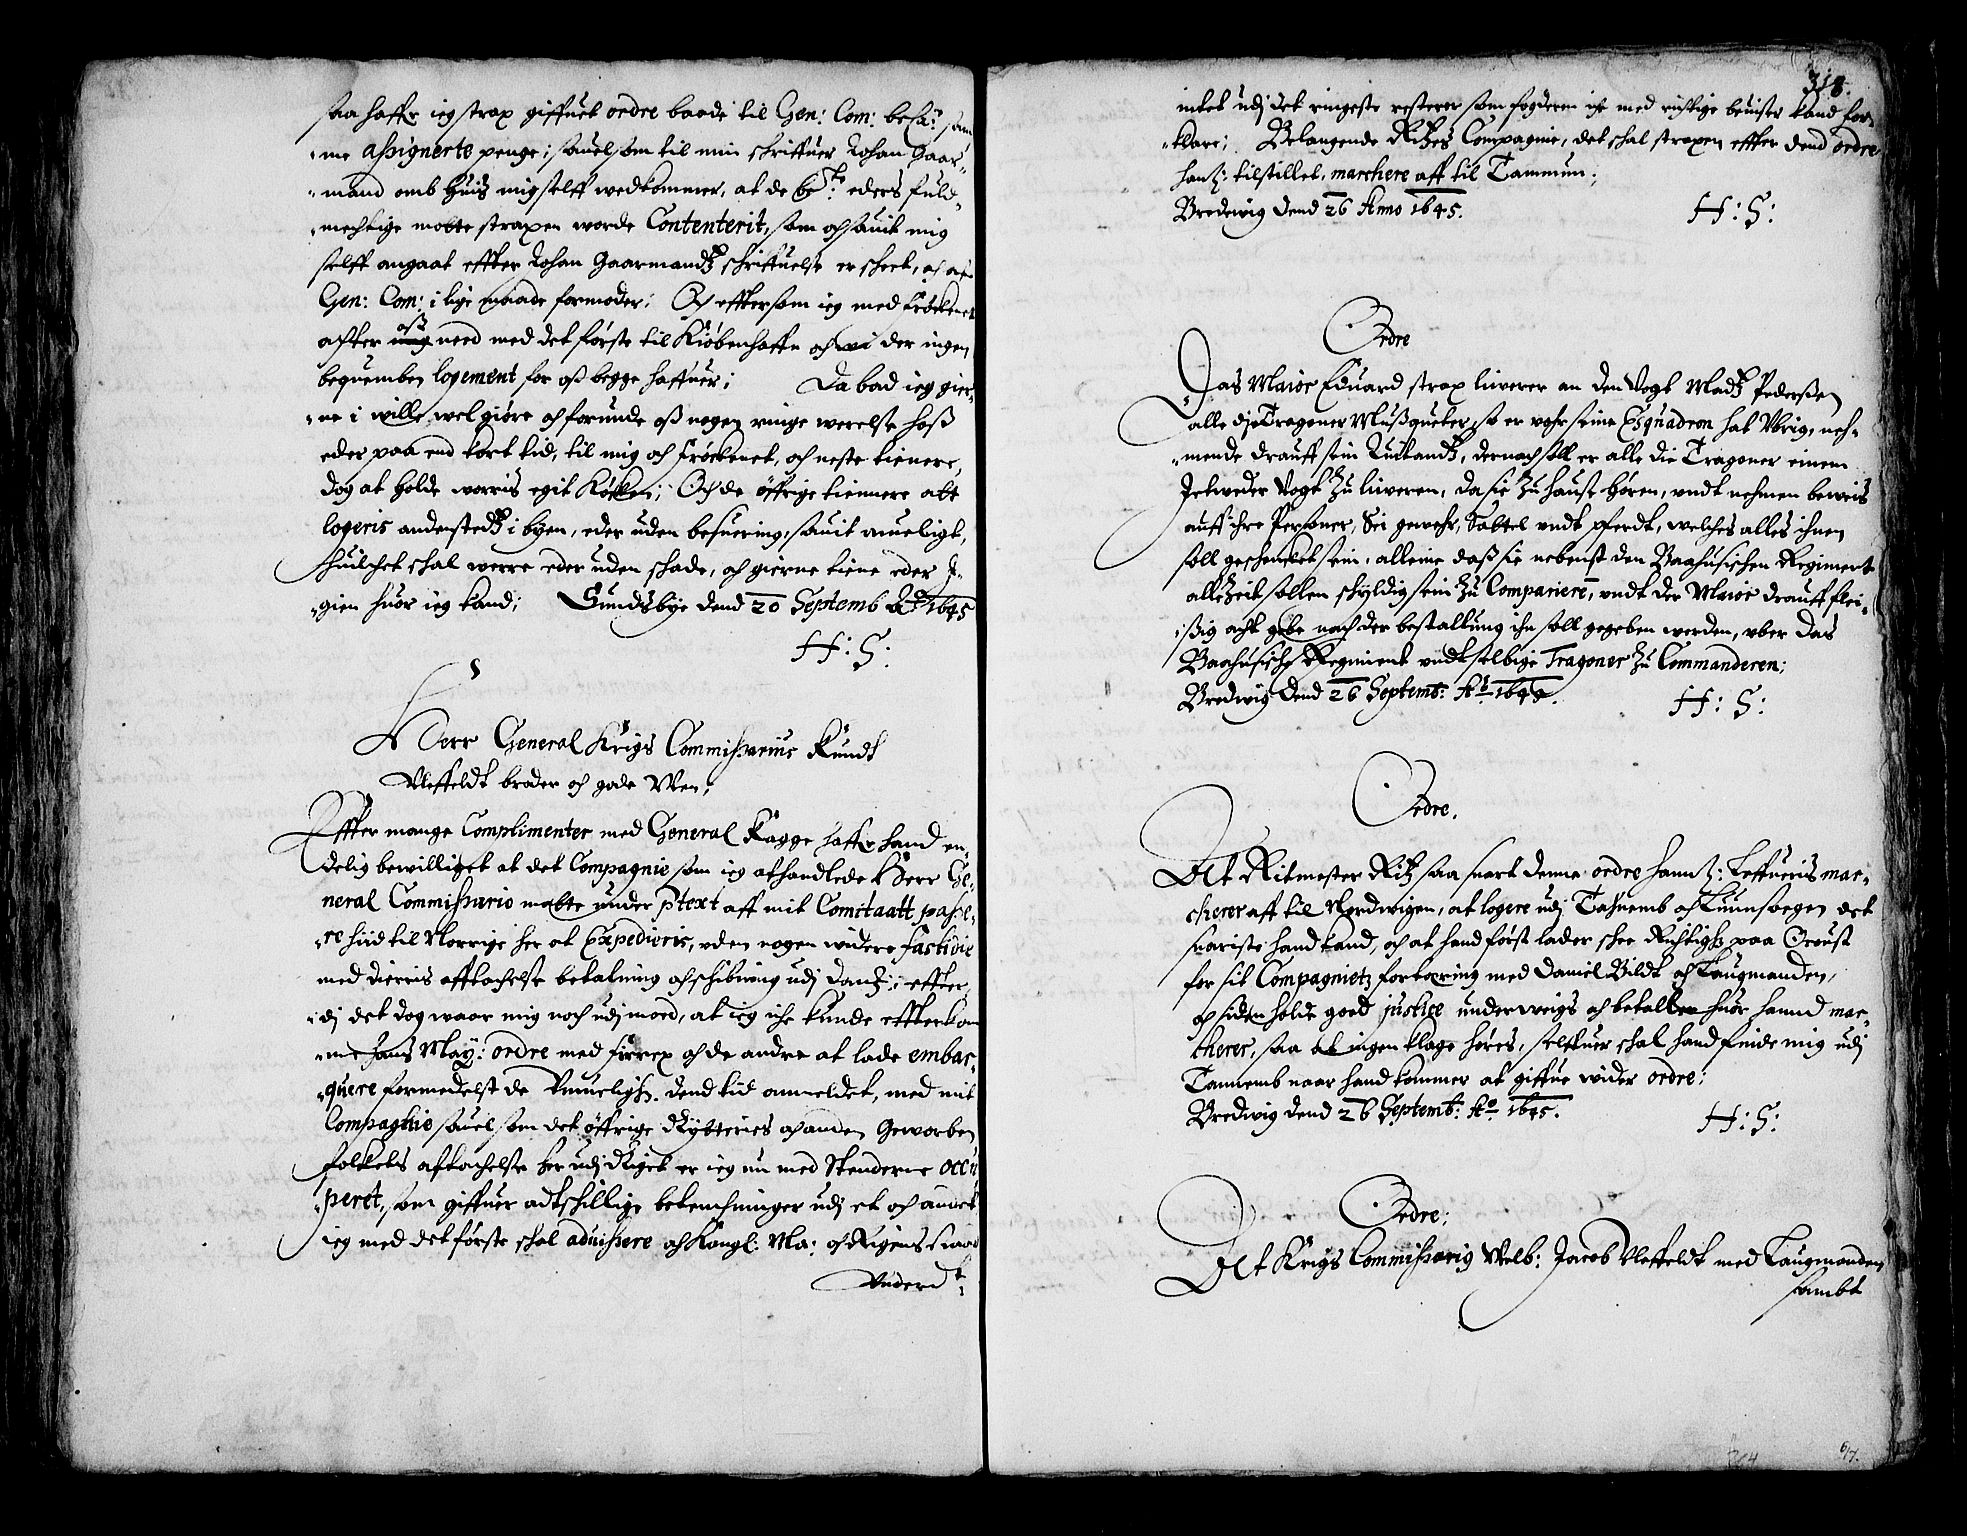 saa haffr ieg strax giffuet ordre baade til Gen: Com: besa: sam
me assignerte penge; saauelsom til min skriffuer Johan Gaar-
mand omb huis mig selff wedkommer, at de be:te eders fuld-
mechtige motte straxen worde Contenterit, som och sauit mig
selff angaat effter Johan Gaarmandtz schriffuelse er scheet, och aff
Gen: Com: i lige maade formoder; Och effter som ieg med Frøckenet
achter oss need med det første til Kiøbenhaffn och wi der ingen
bequemben logement for oss begge haffuer; Da bad ieg gier-
ne i wille wel giøre och forunde oss nogen ringe werelse hoss
eder paa end kort tid, til mig och Frøckenet, och neste tienere,
dog at holde worris egit Køcken; Och de øffrige tiennere att
logeris anderstedtz i byen, eder uden besuering, sauit mueligt,
huilchet schal werre eder uden schade, och gierne tiene eder I-
gien huor ieg kand; Sundsbye dend 20 Septemb Ao 1645
H: S:
Herr General Krigs Commissarius Knudt
Vleffeldt broder och gode Wen,
Effter mange Complimenter med General Kagge haffr hand en-
delig bewilliget at det Compagnie som ieg afhandlede Herr Ge-
neral Commissario motte under ptext aff mit Comitaatt passe-
re hiid til Norrige her at Expedieris, uden nogen widere fastidie
med dieris afftachelse betalning och schibning udj Danm; effter-
dj det dog waar mig noch udj moed, at ieg iche kunde effterkom
me hans May: ordre med firrex och de andre at lade embar-
quere formedelst de Vmueligh: dend tid anmeldet, med mit
Compagnie sauel som det øffrige Rytteries och anden Geworben
folckets aftachelse her udj Riget er ieg nu med Stenderne occu
peret, som giffuer adtschillige betenchninger udj et och andet
ieg med det første schal aduissere och Kongl: Ma: och Rigens Raad
Vnderd:t
318.
intet udj det ringeste resterer som fogderen iche med richtige beuiser kand for-
klare; Belangende Ritzes Compagnie, det schal straxen effter dend ordre
hanß: tilstillet, marchere aff til Tammun;
Bredwig dend 26 Anno 1645.
H: S:
Ordre
Das Maior Eduard strax liwerer an den Vogt Madtz Pederssen
alle die Tragoner Mussqueter, so er uohr seine Esquadron hat Vbrig, neh-
mende drauff sein Quitandtz, dernach soll er alle die Tragoner einem
Jetweder Vogt zu liuveren, da sie zu hause hören, undt nehmen beweis
auff ihre Personer, Sei gewehr, Sattel undt pferdt, welches alles ihnen
soll geschencket sein, alleine dass sie nebenst den Baahusischen Regiment
alle zeit sollen schyldig sein zu Compariere, undt der Maior drauff flei-
ssig acht gebe nach der bestallung ihn soll gegeben werden, uber das
Baahusische Regiment undt selbige Tragoner zu Commanderen;
Bredwig dend 26 Septemt: Ao 1645.
H: S:
Ordre.
At Ritmester Ritz saa snart denne ordre hannß: Leffueris mar-
cherer aff til Nordwigen, at logere udj Tahnemb och Quunsogen det
snariste hand kand, och at hand først lader schee Richtigh: paa Oroust
for sit Compagnietz fortæring med Daniel Bildt och Laugmanden,
och siden holde goed justice underweigs och betaller huor hannd mar-
cherer, saa at ingen klage høres, selffuer schal hand finde mig udj
Tannemb naar hand kommer at giffue wider ordre;
Bredwig dend 26 Septemt: Ao 1645.
H: S:
Ordre;
At Krigs Commissarig Welb: Jacob Vleffeldt med Laugmanden
sambt